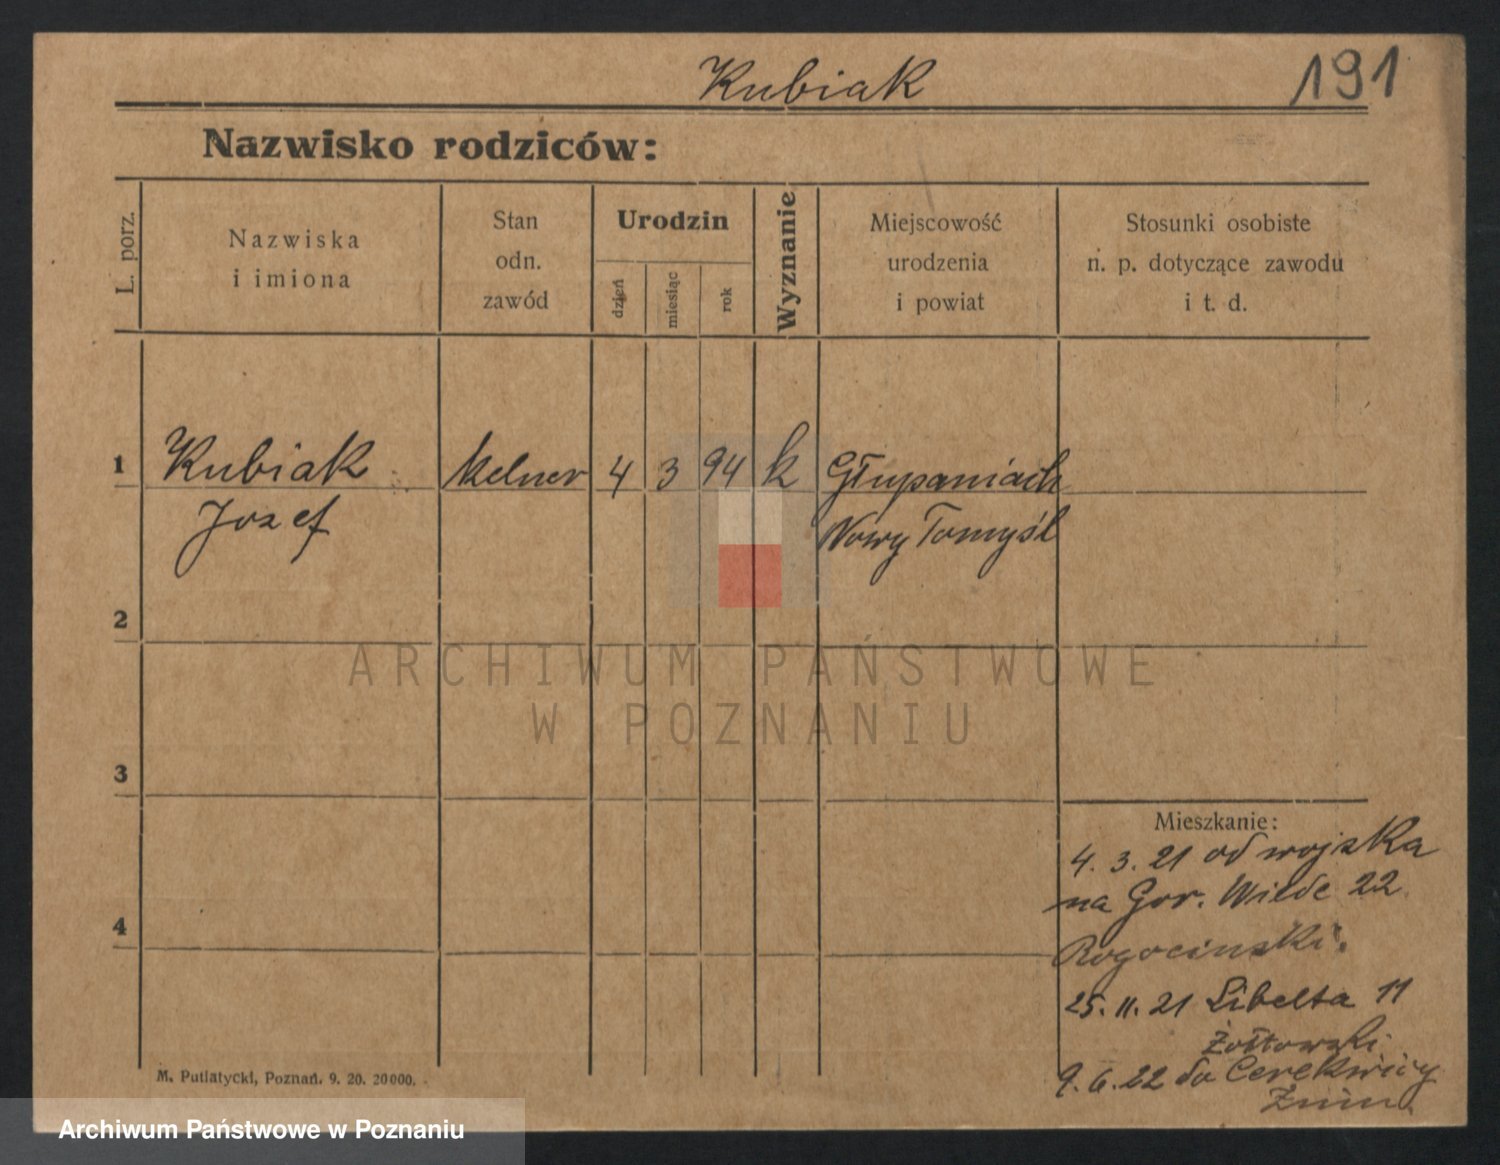 Kubiak
191
Nazwisko rodziców:
L. porz.
Nazwiska
i imiona
Stan
odn.
zawód
Urodzin
dzień
miesiąc
rok
Wyznanie
Miejscowość
urodzenia
i powiat
Stosunki osobiste
n. p. dotyczące zawodu
i t. d.
1 Kubiak kelner 4 3 94 k Głupaniach
Jozef Nowy Tomyśl
2
3
4
ARCHIWUM PAŃSTWOWE
W POZNANIU
Mieszkanie:
4. 3. 21 od wojska
na Gor. Wilde 22
Rogocinski.
25. 11. 21 Libelta 11
Żołtowski
9. 6. 22 do Cerekwicy
Żnin
M. Putiatycki, Poznań. 9. 20. 20000.
Archiwum Państwowe w Poznaniu